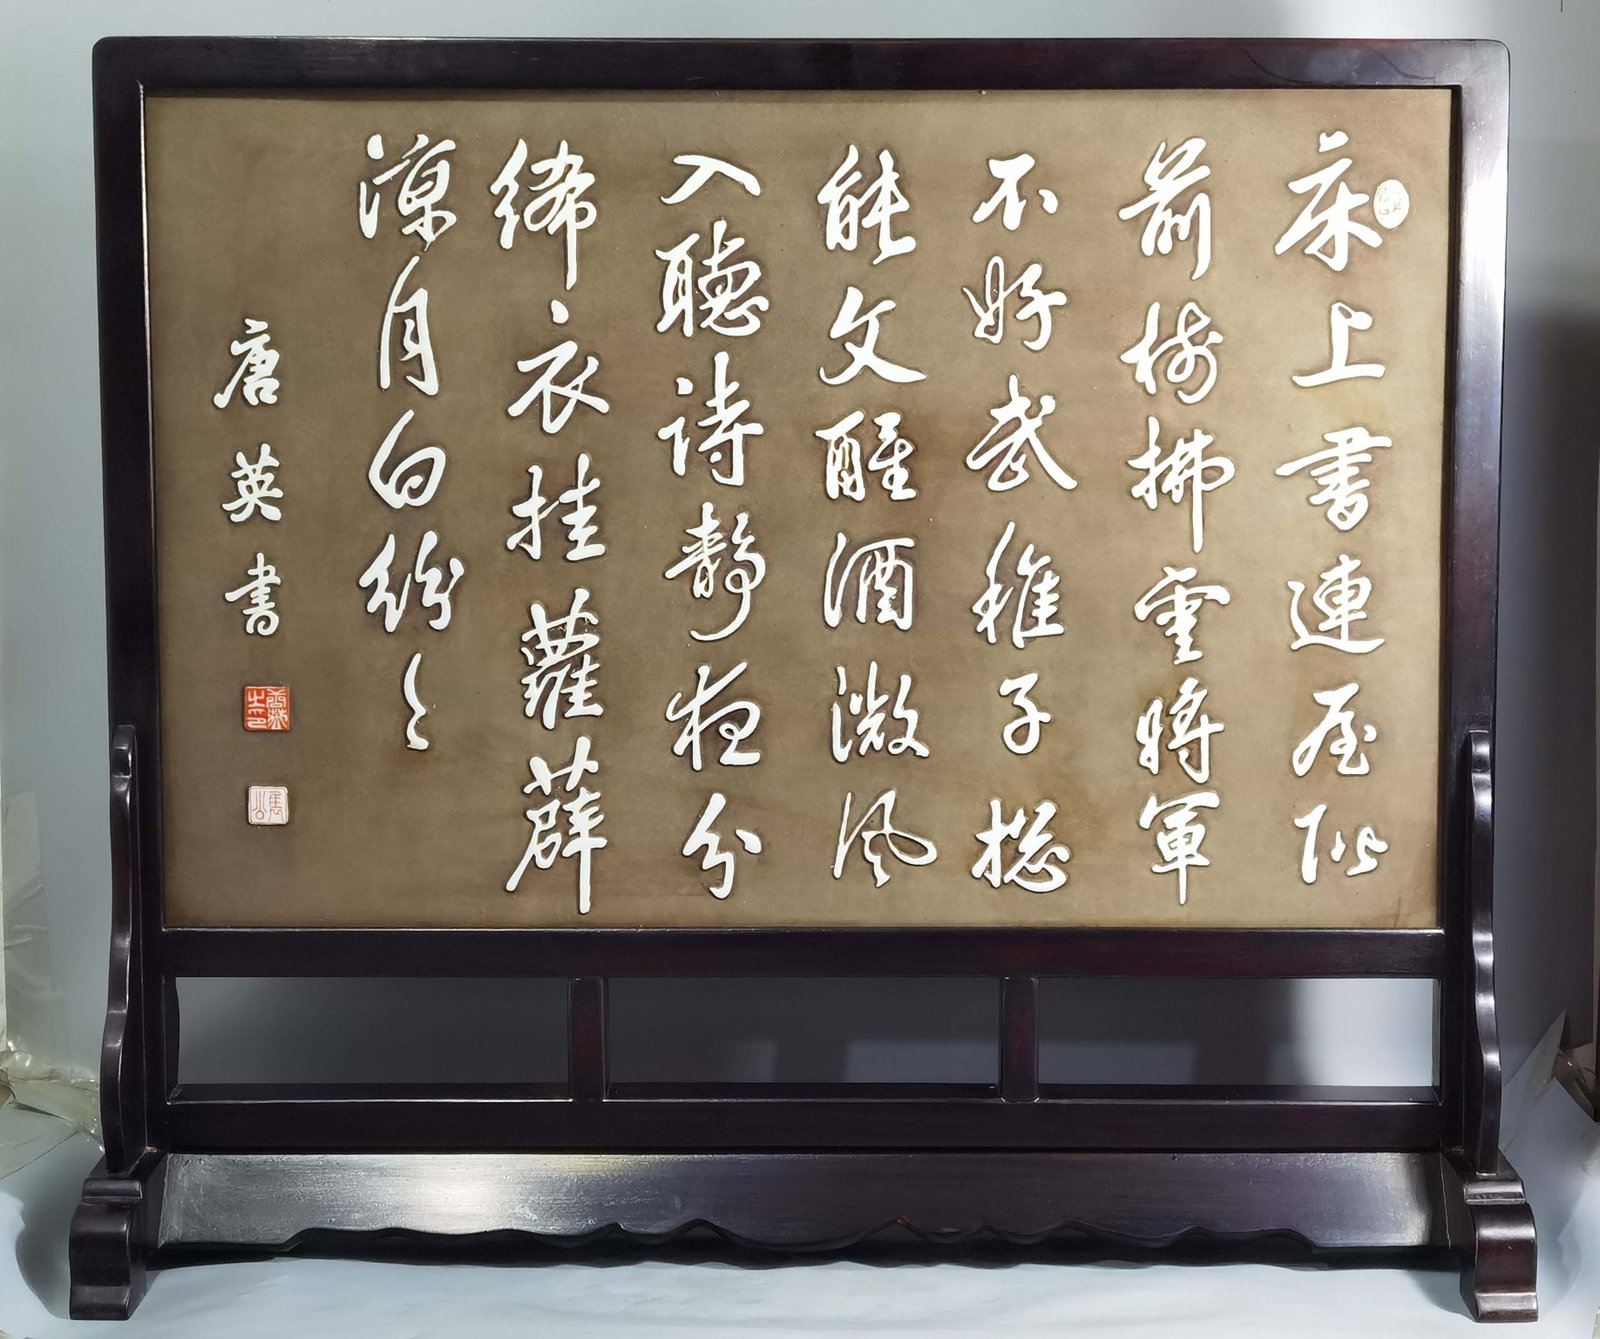 床上書連屋階
前樹拂雲將軍
不好武稚子揔
能文醒酒微風
入聽詩靜夜分
絺衣挂蘿薜
涼月白紛〻
唐英書